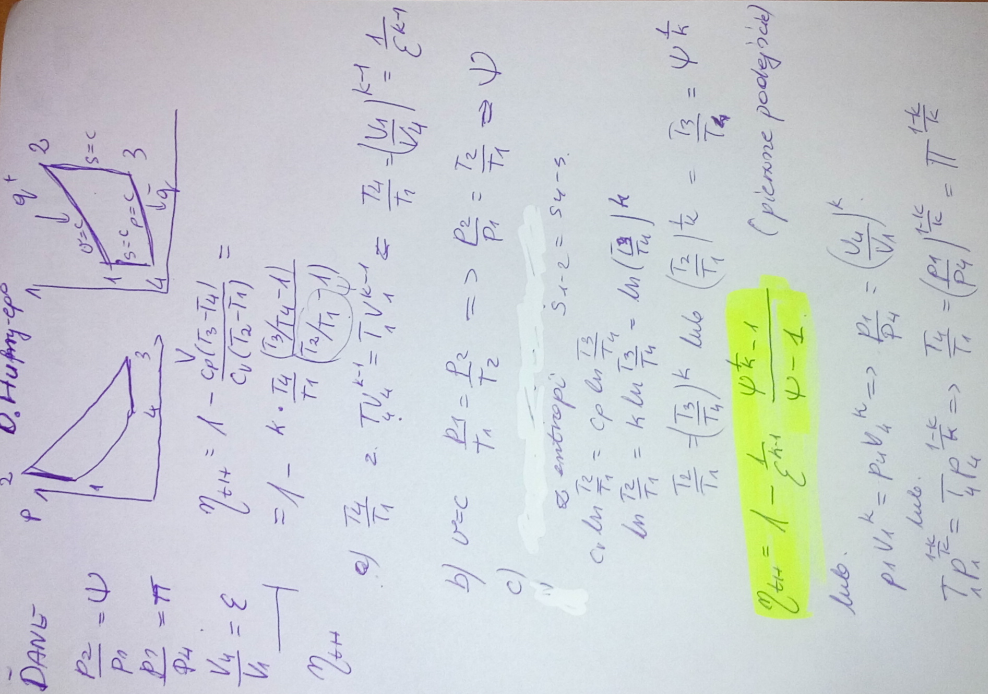 DANE
p2/p1 = ψ
p1/p4 = π
V4/V1 = ε
ηtH
O. Humphrey-ego
P
2
1
4
3
q+
2
v=c
s=c
1
s=c
p=c
3
4
q-
ηtH = 1 - cp(T3-T4)/cv(T2-T1) =
= 1 - k · T4/T1 (T3/T4 -1)/(T2/T1 -1)
a) T4/T1 z. T4V4^k-1 = T1V1^k-1 => T4/T1 = (V1/V4)^k-1 = 1/ε^k-1
b) v=c p1/T1 = p2/T2 => p2/p1 = T2/T1 => ψ
c)
z entropi S1-2 = S4-3
cv ln T2/T1 = cp ln T3/T4
ln T2/T1 = k ln T3/T4 = ln (T3/T4)^k
T2/T1 = (T3/T4)^k lub (T2/T1)^1/k = T3/T4 = ψ^1/k
ηtH = 1 - 1/ε^k-1 ψ^1/k -1/ψ-1 (pierwsze podejście)
lub.
p1V1^k = p4V4^k => p1/p4 = (V4/V1)^k
lub.
T1p1^1-k/k = T4p4^1-k/k => T4/T1 = (p1/p4)^1-k/k = π^1-k/k